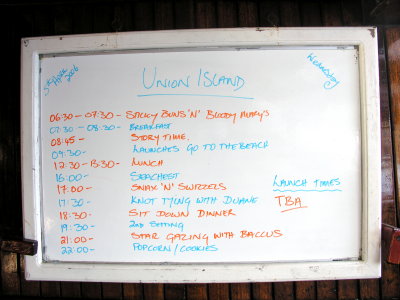 5th April 2006
Wednesday
UNION ISLAND
06:30 - 07:30 - STICKY BUNS 'N' BLOODY MARY'S
07:30 - 08:30 - BREAKFAST
08:45 - STORY TIME.
09:30 - LAUNCHES GO TO THE BEACH
12:30 - 13:30 - LUNCH
16:00 - SEACHEST
17:00 - SNAX 'N' SWIZZELS
17:30 - KNOT TYING WITH DUANE
18:30 - SIT DOWN DINNER
19:30 - 2ND SITTING
21:00 - STAR GAZING WITH BACCUS
22:00 - POPCORN/COOKIES
LAUNCH TIMES
TBA